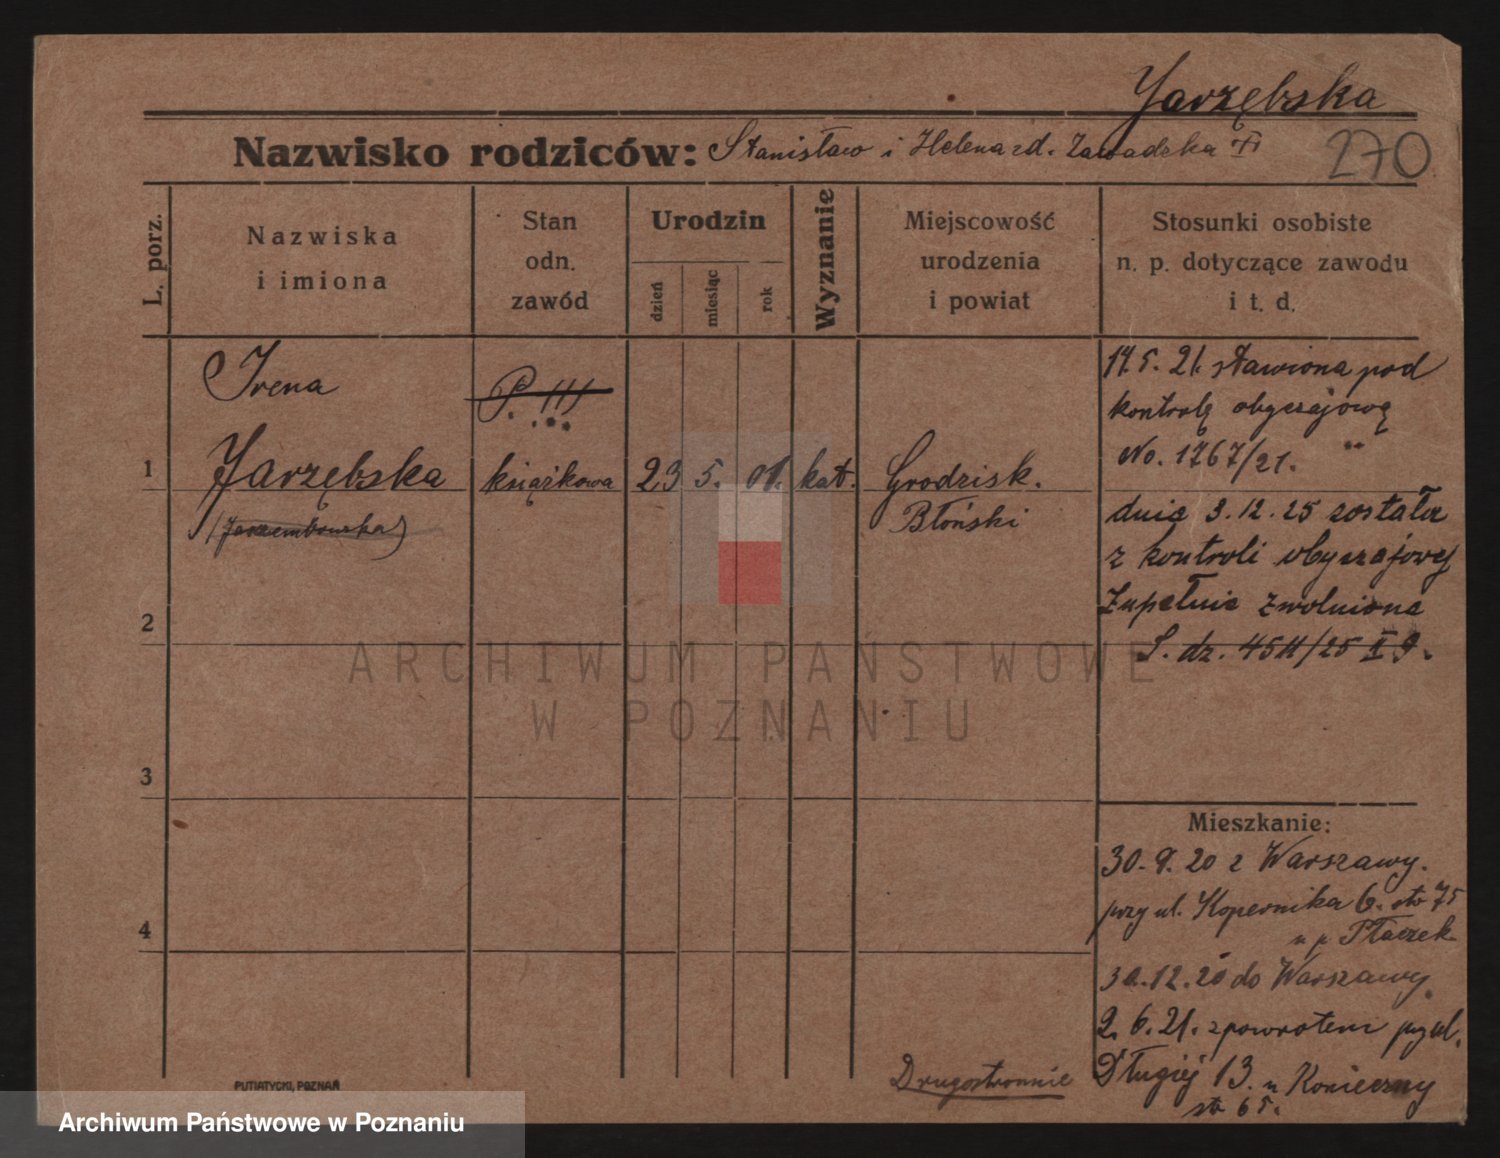 Jarzębska
Nazwisko rodziców: Stanisław i Helena zd. Zawadzka
270
L. porz.
Nazwiska
i imiona
Stan
odn.
zawód
Urodzin
dzień
miesiąc
rok
Wyznanie
Miejscowość
urodzenia
i powiat
Stosunki osobiste
n. p. dotyczące zawodu
i t. d.
Irena
P. III
1 Jarzębska książkowa 23 5. 01. kat. Grodzisk.
(Jarzembowska) Błoński
14. 5. 21. stawiona pod
kontrolę obyczajową
No. 1767/21.
dnia 3.12.25 została
z kontroli obyczajowej
zupełnie zwolniona
L. dz. 4511/25 II
2
3
4
Mieszkanie:
30. 9. 20 z Warszawy.
przy ul. Kopernika 6. str 75
u p Ptaczek
30.12.20 do Warszawy.
2. 6. 21. zpowrotem przy ul.
Długiej 13. u Konieczny
str 65.
Drugostronnie
PUTIATYCKI, POZNAŃ
ARCHIWUM PAŃSTWOWE
W POZNANIU
Archiwum Państwowe w Poznaniu